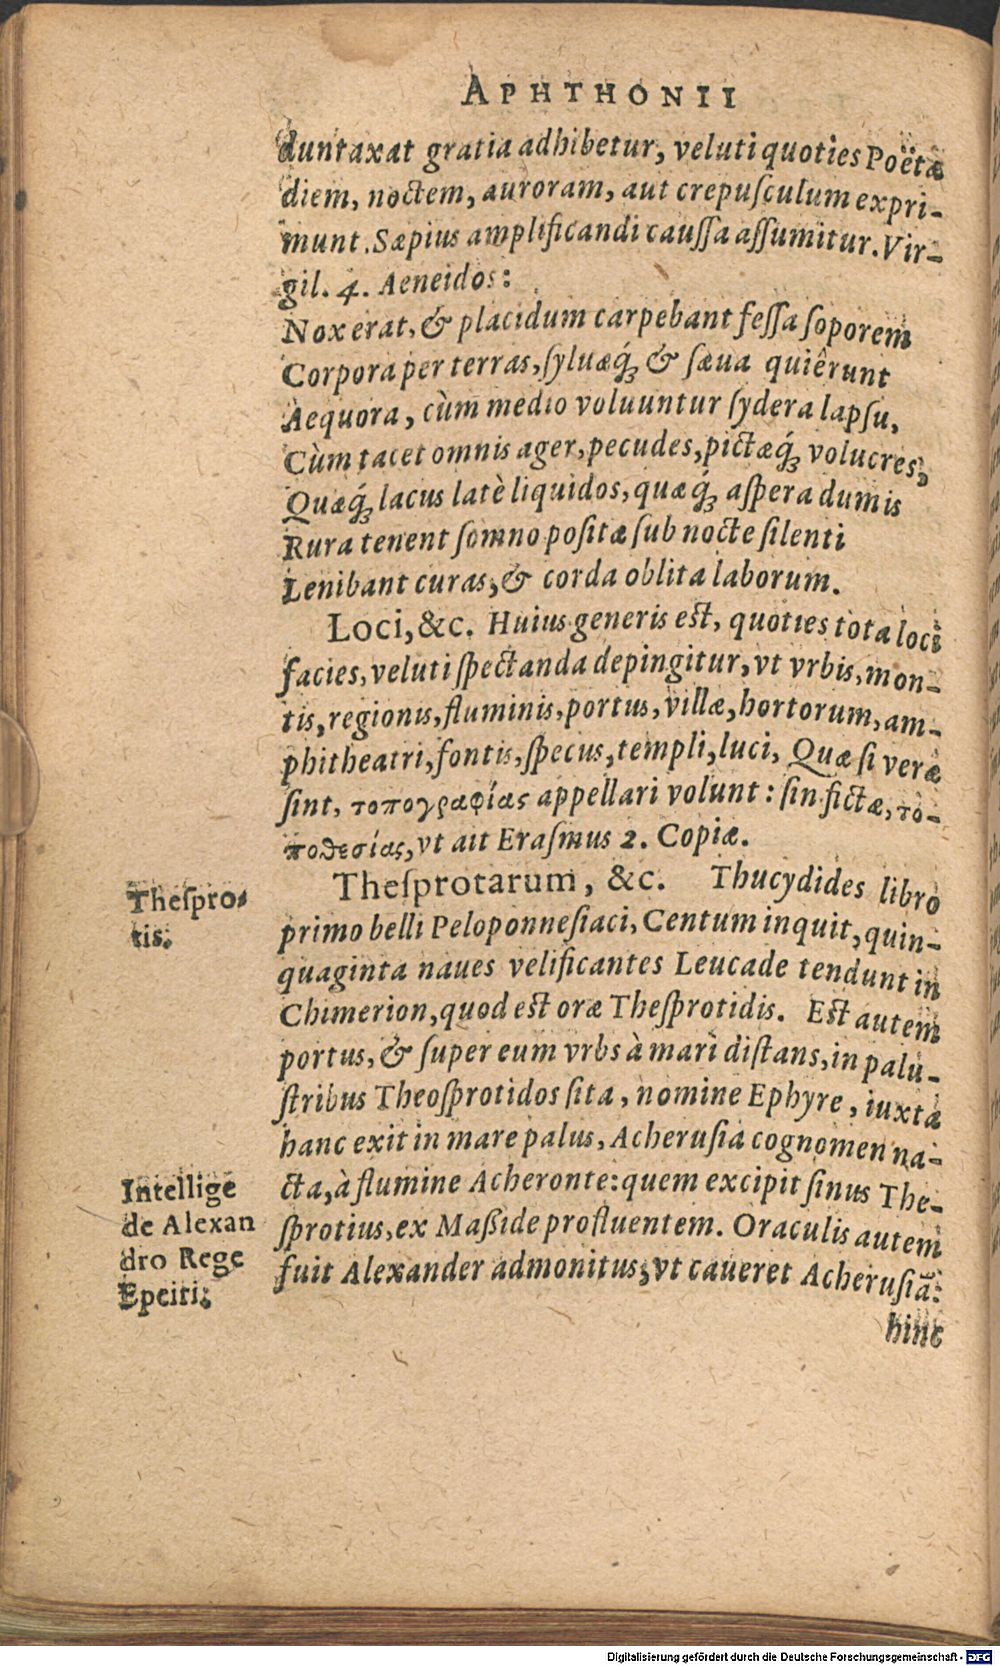 APHTHONII
duntaxat gratia adhibetur, veluti quoties Poëtæ
diem, noctem, auroram, aut crepuſculum expri-
munt. Sæpius amplificandi cauſſa aſſumitur. Vir-
gil. 4. Aeneidos:
Nox erat, & placidum carpebant feſſa ſoporem
Corpora per terras, ſyluæq́; & ſæua quiêrunt
Aequora, cùm medio voluuntur ſydera lapſu,
Cùm tacet omnis ager, pecudes, pictæq́; volucres,
Quæq́; lacus latè liquidos, quæq́; aſpera dumis
Rura tenent ſomno poſitæ ſub nocte ſilenti
Lenibant curas, & corda oblita laborum.
Loci, &c. Huius generis est, quoties tota loci
facies, veluti ſpectanda depingitur, vt vrbis, mon-
tis, regionis, fluminis, portus, villæ, hortorum, am-
phitheatri, fontis, ſpecus, templi, luci, Quæ ſi veræ
ſint, τοπογραφίας appellari volunt: ſin fictæ, το-
ποθεσίας, vt ait Eraſmus 2. Copiæ.
Theſprotarum, &c. Thucydides libro
Theſpro-
tis.
primo belli Peloponneſiaci, Centum inquit, quin-
quaginta naues velificantes Leucade tendunt in
Chimerion, quod est oræ Theſprotidis. Est autem
portus, & ſuper eum vrbs à mari diſtans, in palu-
ſtribus Theoſprotidos ſita, nomine Ephyre, iuxta
hanc exit in mare palus, Acheruſia cognomen na-
cta, à flumine Acheronte: quem excipit ſinus The-
ſprotius, ex Maßide profluentem. Oraculis autem
fuit Alexander admonitus, vt caueret Acheruſiã:
Intellige
de Alexan
dro Rege
Epeiri.
hinc
Digitalisierung gefördert durch die Deutsche Forschungsgemeinschaft - DFG